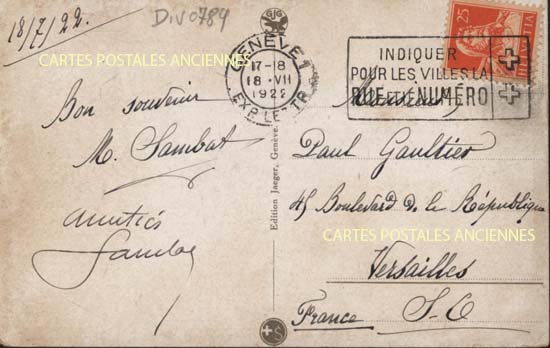 18/7/22.
Div0789
CARTES POSTALES ANCIENNES
GENÈVE 1
17-18
18·VII
1922
EXP. LETTR.
INDIQUER
POUR LES VILLES LA
RUE et le NUMÉRO
25
HELVETIA
Bon souvenir
M. Sambat
amitiés
Edition Jaeger, Genève.
Monsieur
Paul Gaultier
45 Boulevard de la République
CARTES POSTALES ANCIENNES
Versailles
France S.O